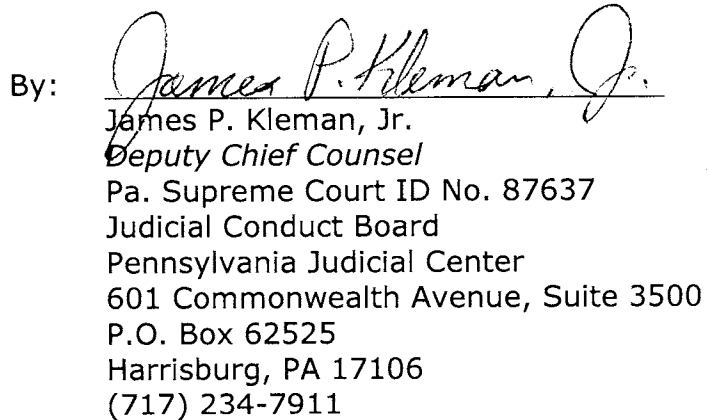 By: James P. Kleman, Jr.
James P. Kleman, Jr.
Deputy Chief Counsel
Pa. Supreme Court ID No. 87637
Judicial Conduct Board
Pennsylvania Judicial Center
601 Commonwealth Avenue, Suite 3500
P.O. Box 62525
Harrisburg, PA 17106
(717) 234-7911